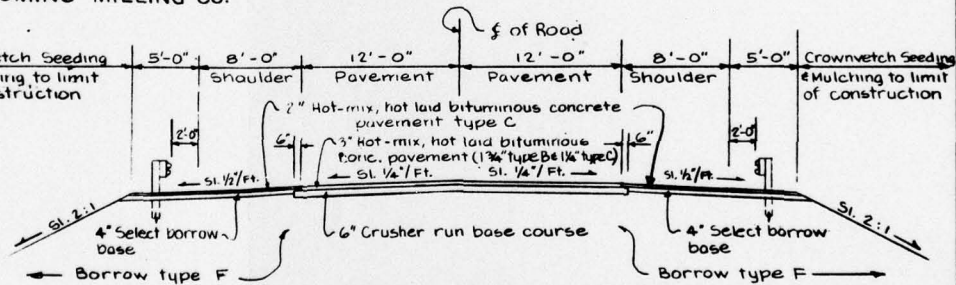 MILLING CO.
℄ of Road
etch Seeding
ing to limit
struction
5'-0"
8'-0"
Shoulder
12'-0"
Pavement
12'-0"
Pavement
8'-0"
Shoulder
5'-0"
Crownvetch Seeding
& Mulching to limit
of construction
2" Hot-mix, hot laid bituminous concrete
pavement type C
2'-0"
6"
3" Hot-mix, hot laid bituminous
conc. pavement (1 3/4" type B & 1 1/4" type C)
6"
2'-0"
Sl. 1/2"/Ft.
Sl. 1/4"/Ft.
Sl. 1/4"/Ft.
Sl. 1/2"/Ft.
Sl. 2:1
4" Select borrow
base
6" Crusher run base course
4" Select borrow
base
Sl. 2:1
Borrow type F
Borrow type F